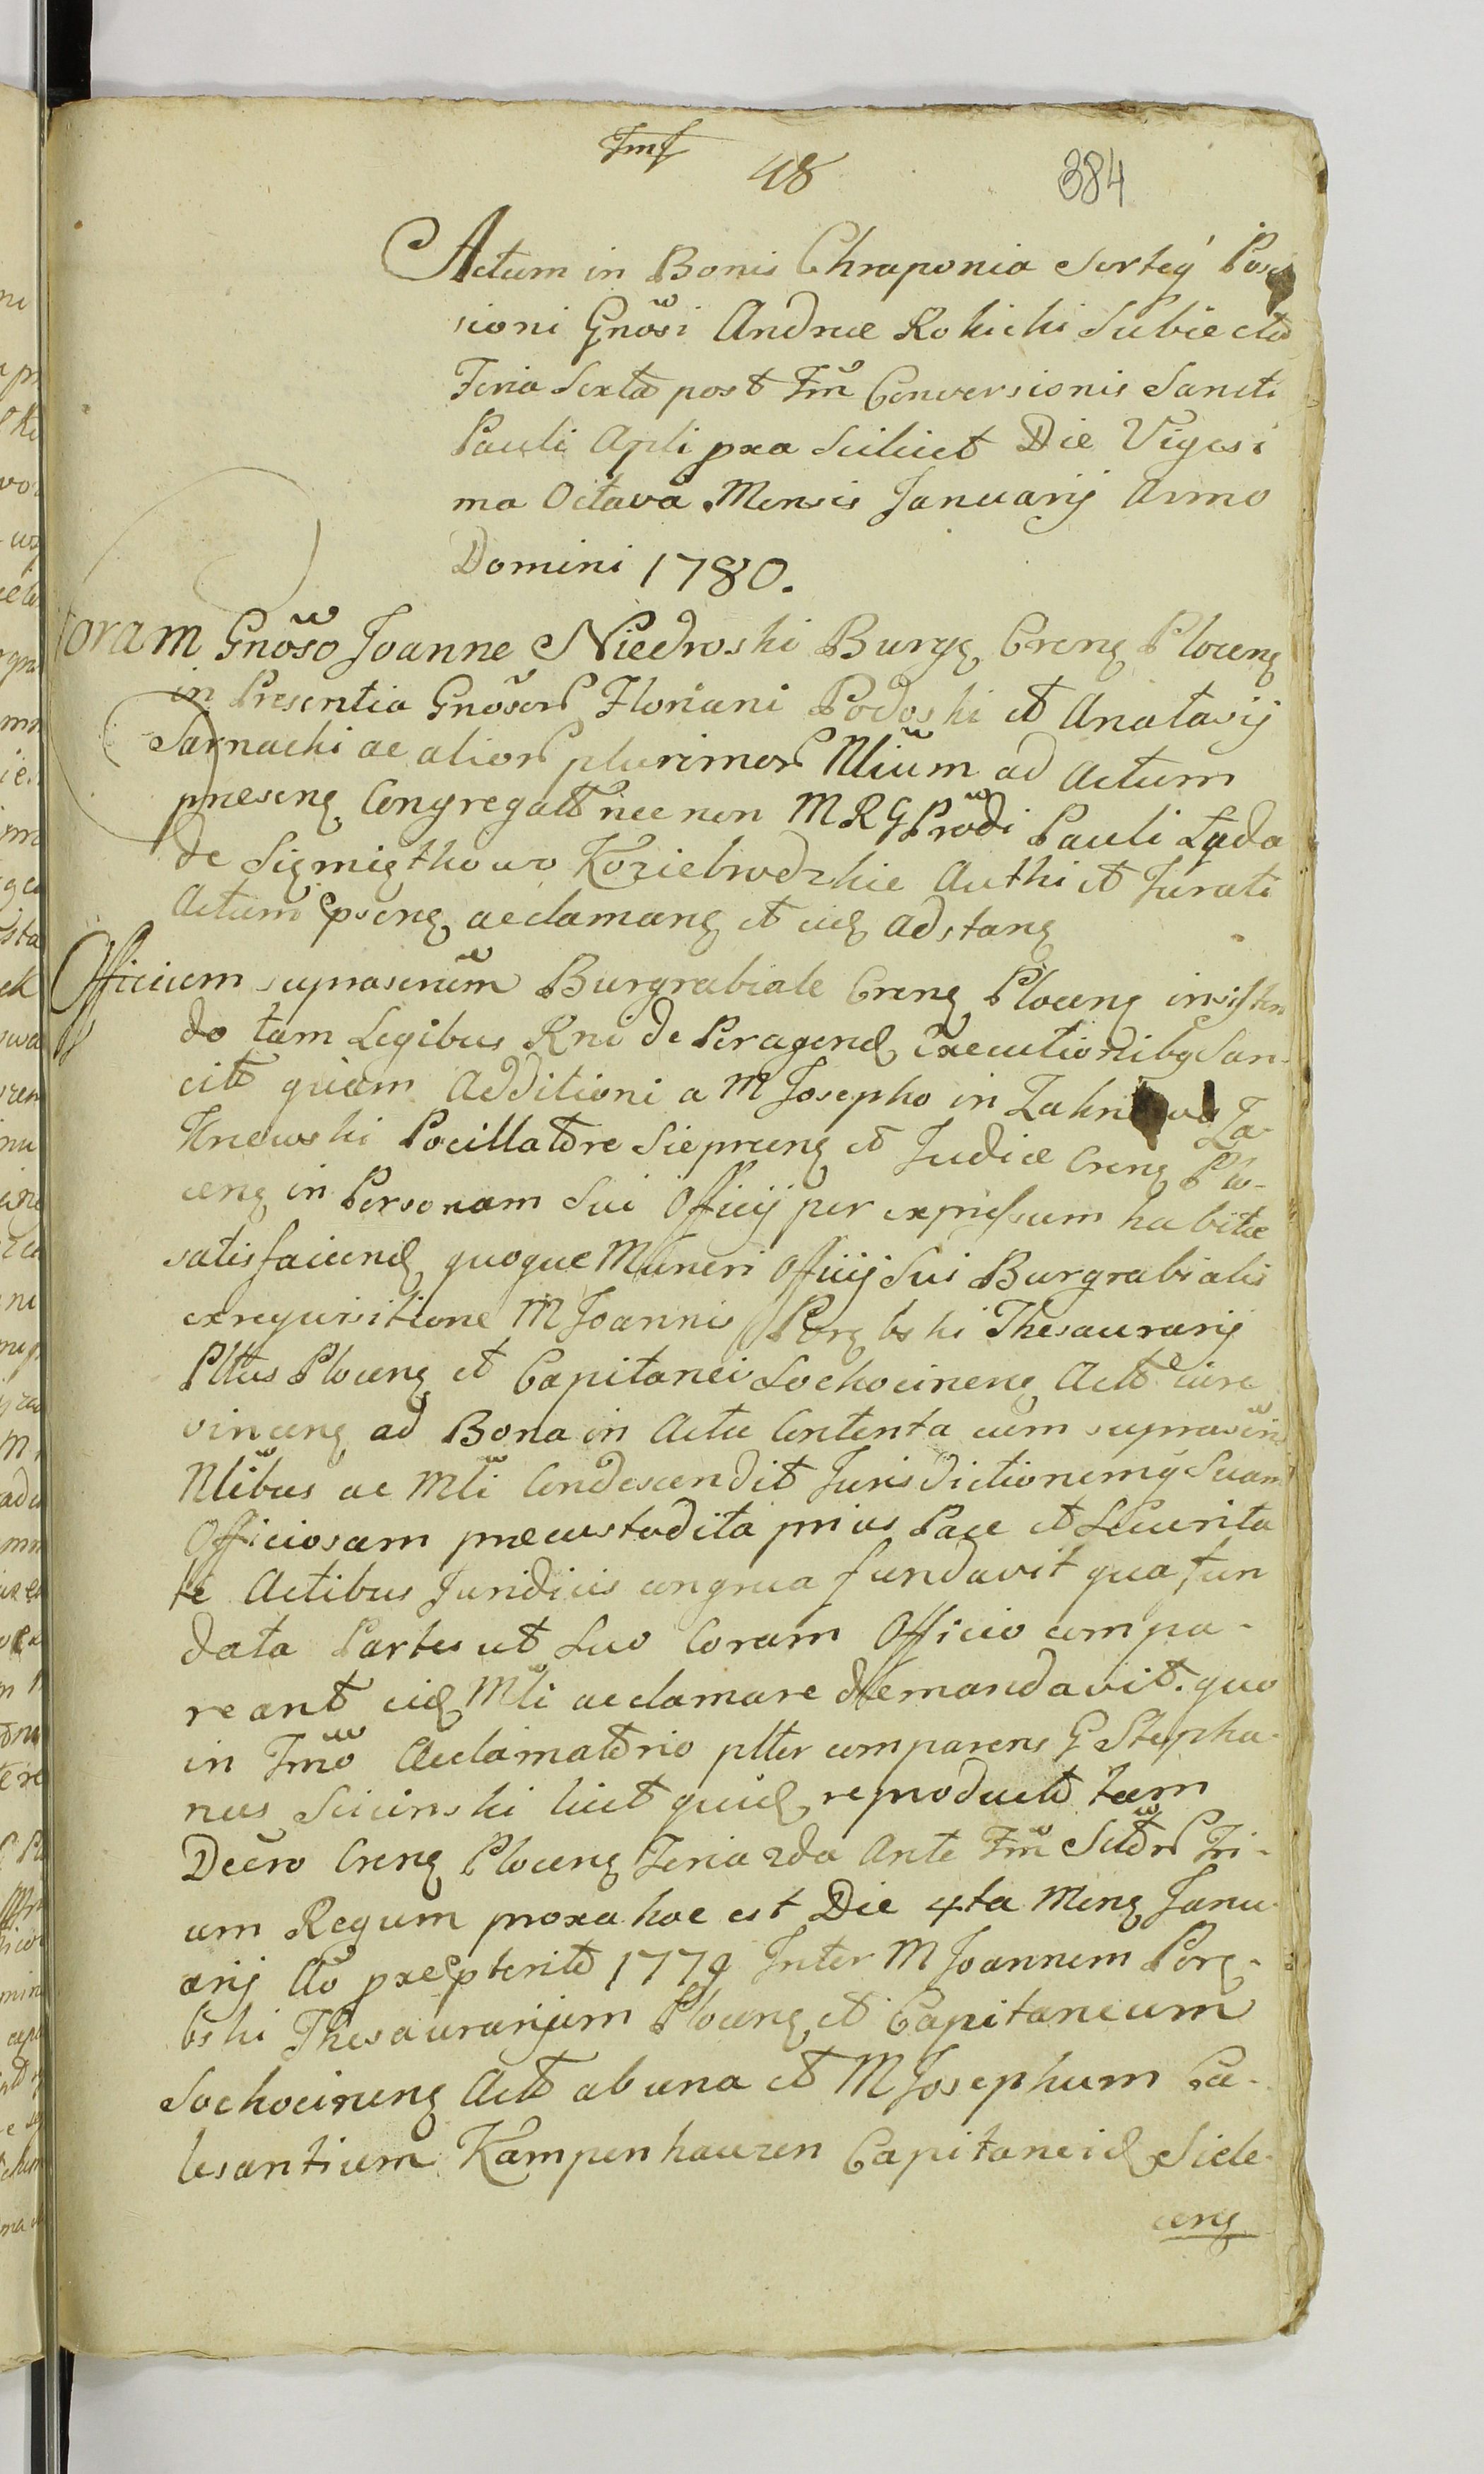 48
384
Actum in Bonis Chraponia Sorteq Poses
sioni Gnosi Andreæ Rokicki Subiecta
Feria Sexta post Fm Conversionis Sancti
Pauli Apli pxa Scilicet Die Vigesi
ma Octava Mensis Januarij Anno
Domini 1780.
Coram Gnoso Joanne Niedroski Burgg Crens Plocens
in Presentia Gnosor Floriani Podoski et Anatasij
Sarnacki ac alior plurimor Nlium ad Actum
præsens Congregatt nec non MRG Prodi Pauli Lada
de Koziebrodzkie Authi et Jurati
Actum psens acclamans et eid Adstans
Officium suprascrum Burgrabiale Crens Plocens insisten
do tam Legibus Rni de Peragend Executionibq San-
citt quam Additioni a M Josepho in Za-
krzewski Pocillatore Sieprcens et Judice Crens Plo-
cens in Personam Sui Officij per expressum habitæ
satisfaciend quoque Muneri Officij Sui Burgrabialis
ex requisitione M Joannis Porębski Thesaurarij
Plttus Plocens et Capitanei Sochocinens Actt iure
vincens ad Bona in Actu Contenta cum suprascris
Nlibus ac Mli Condescendit Jurisdictionemq Suam
Officiosam præcustodita prius Pace et Securita
te Actibus Juridicis congrua fundavit qua fun
data Partes ut Suo Coram Officio compa-
reant eid Mli acclamare demandavit. quo
in Tmo Acclamatorio pltter comparens G Stepha-
nus Scicinski licet quid reproducto tam
Decro Crens Plocens Feria 2da Ante Fm Sctor Tri-
um Regum proxa hoc est Die 4ta Mens Janu-
arij Ao pxe pterito 1779 Inter M Joannem Porę-
bski Thesaurarium Plocens et Capitaneum
Sochocinens Actt ab una et M Josephum Ca-
lesantium Kampenhauzen Capitaneid Siele-
cens